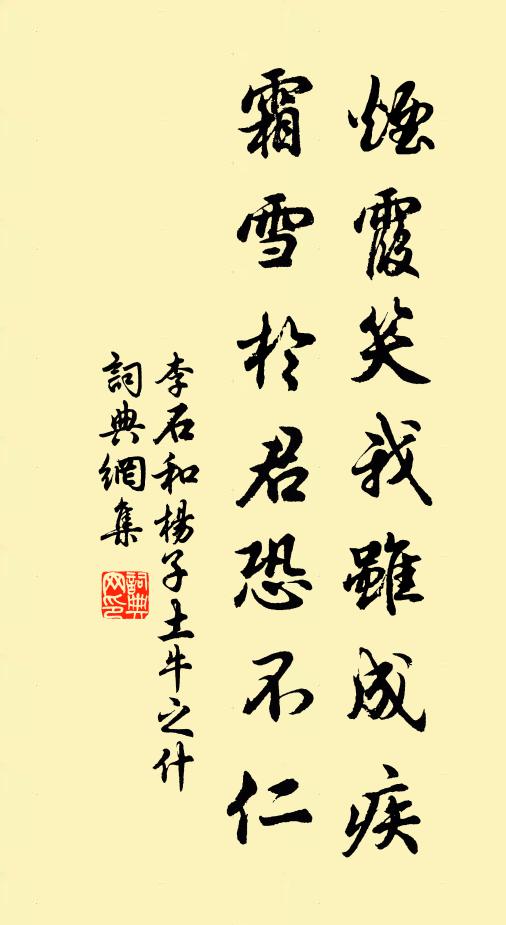 煙霞笑我雖成疾
霜雪於君恐不仁
李石和楊子土牛之什
詞典網集
詞典网印